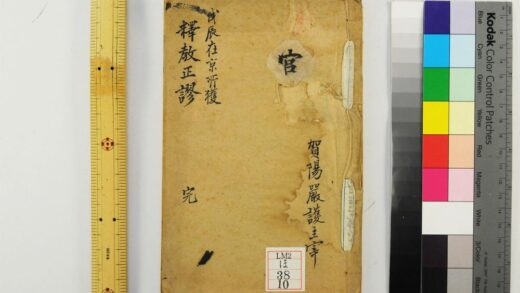 戊辰在京師獲
釋教正謬
完
官
賀陽嚴護主宰
LM2
は
38
10
Kodak Color Control Patches
Blue
Cyan
Green
Yellow
Red
Magenta
White
3/Color
Black